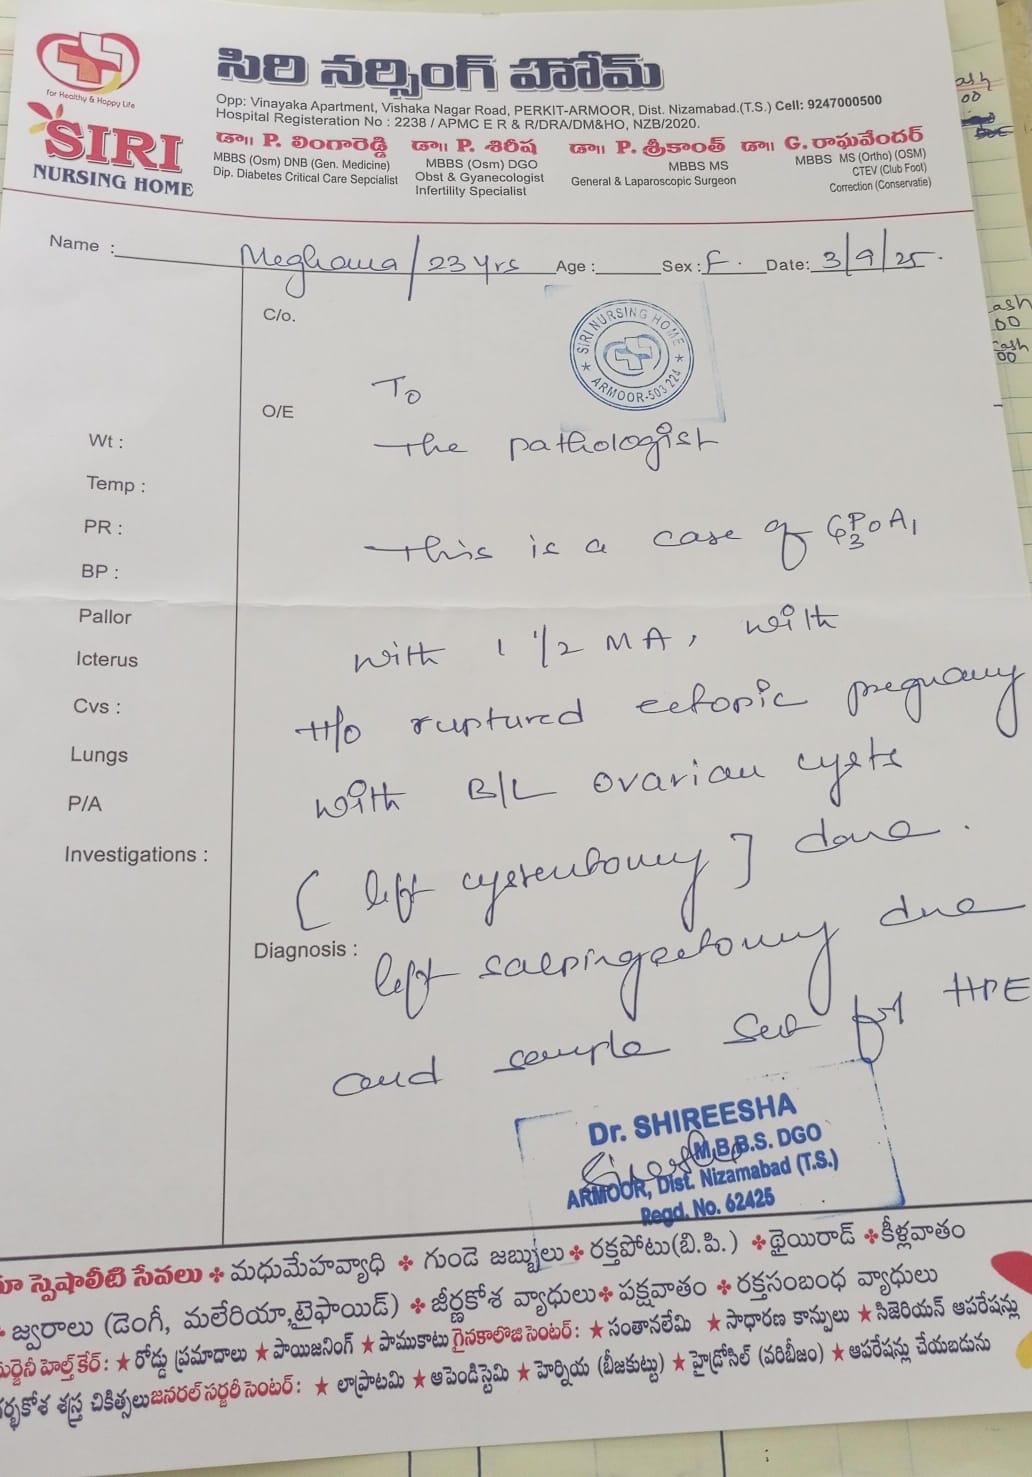 సిరి నర్సింగ్ హోమ్
for Healthy & Happy Life
SIRI
NURSING HOME
Opp: Vinayaka Apartment, Vishaka Nagar Road, PERKIT-ARMOOR, Dist. Nizamabad.(T.S.) Cell: 9247000500
Hospital Registeration No : 2238 / APMC E R & R/DRA/DM&HO, NZB/2020.
డా॥ P. లింగారెడ్డి
MBBS (Osm) DNB (Gen. Medicine)
Dip. Diabetes Critical Care Sepcialist
డా॥ P. శిరీష
MBBS (Osm) DGO
Obst & Gyanecologist
Infertility Specialist
డా॥ P. శ్రీకాంత్
MBBS MS
General & Laparoscopic Surgeon
డా॥ G. రాఘవేందర్
MBBS MS (Ortho) (OSM)
CTEV (Club Foot)
Correction (Conservatie)
Name : Meghana / 23 yrs Age : Sex : F. Date: 3/9/25.
C/o.
SIRI NURSING HOME
★ ARMOOR-503 224 ★
To
O/E
Wt :
the pathologist
Temp :
PR :
This is a case of G3P0A1
BP :
Pallor
with 1 1/2 MA, with
Icterus
Cvs :
H/o ruptured ectopic pregnancy
Lungs
with B/L ovarian cysts
P/A
Investigations :
[ left cystectomy ] done.
Diagnosis :
left salpingectomy done
and sample sent for HPE
Dr. SHIREESHA
M.B.B.S. DGO
ARMOOR, Dist. Nizamabad (T.S.)
Regd. No. 62425
స్పెషాలిటి సేవలు ✤ మధుమేహవ్యాధి ✤ గుండె జబ్బులు ✤ రక్తపోటు(బి.పి.) ✤ థైయిరాడ్ ✤ కీళ్లవాతం
✤ జ్వరాలు (డెంగీ, మలేరియా,టైఫాయిడ్) ✤ జీర్ణకోశ వ్యాధులు ✤ పక్షవాతం ✤ రక్తసంబంధ వ్యాధులు
హెల్త్ కేర్: ★ రోడ్డు ప్రమాదాలు ★ పాయిజనింగ్ ★ పాముకాటు గైనకాలొజి సెంటర్: ★ సంతానలేమి ★ సాధారణ కాన్పులు ★ సిజెరియన్ ఆపరేషన్లు
శస్త్ర చికిత్సలు జనరల్ సర్జరీ సెంటర్: ★ లాప్రొటమి ★ అపెండిస్టెమి ★ హెర్నియ (బీజకుట్టు) ★ హైడ్రోసిల్ (వరిబీజం) ★ ఆపరేషన్లు చేయబడును